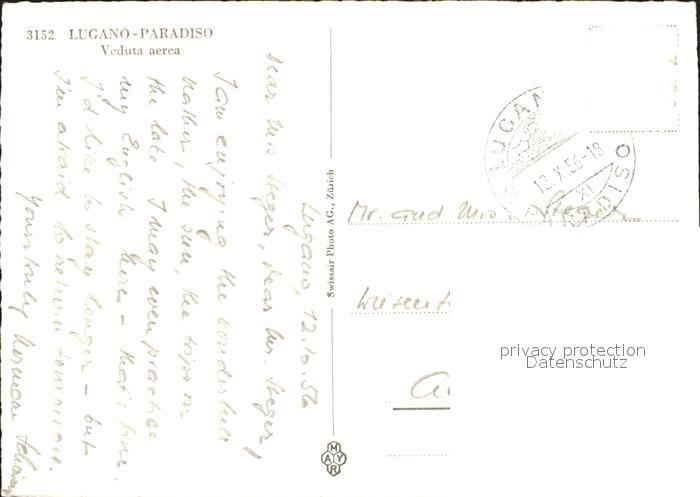 3152 LUGANO-PARADISO
Veduta aerea
Lugano, 12.10.56
Dear Mrs Steger, dear Mr. Steger,
I am enjoying the wonderfull
weather, the sun, the trips on
the lake. I may even practise
my English here - that's fine.
I'd like to stay longer - but
I'm afraid to return tomorrow.
Yours truly
Swissair Photo AG., Zürich
MAYR
LUGANO
12.X.56-18
XI
Mr. and Mrs. Steger
privacy protection
Datenschutz